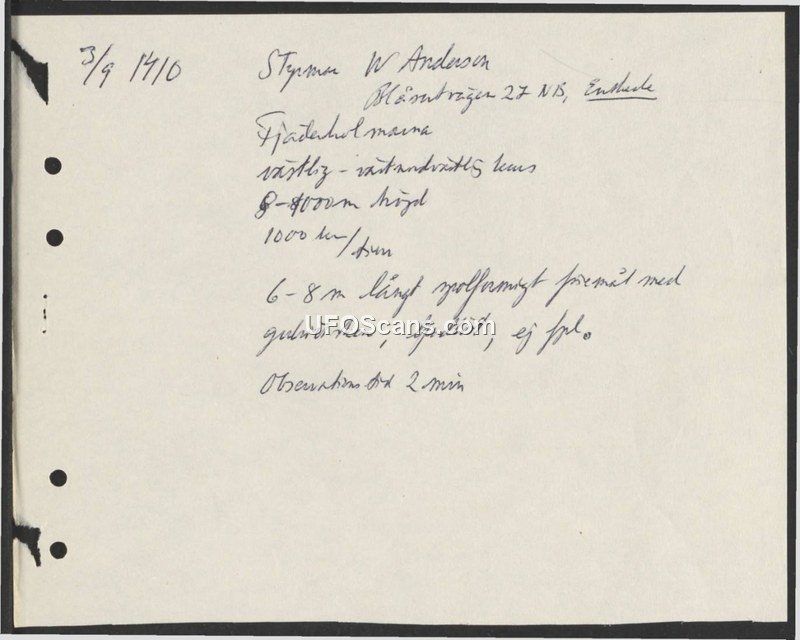 3/9 1410 Styrman W Anderson
Blåsutvägen 27 NB, Enskede
Fjäderholmarna
västlig - västnordvästlig kurs
8-1000 m höjd
1000 km/tim
6-8 m långt spolformigt föremål med
, ej fpl.
UFOScans.com
Observationstid 2 min